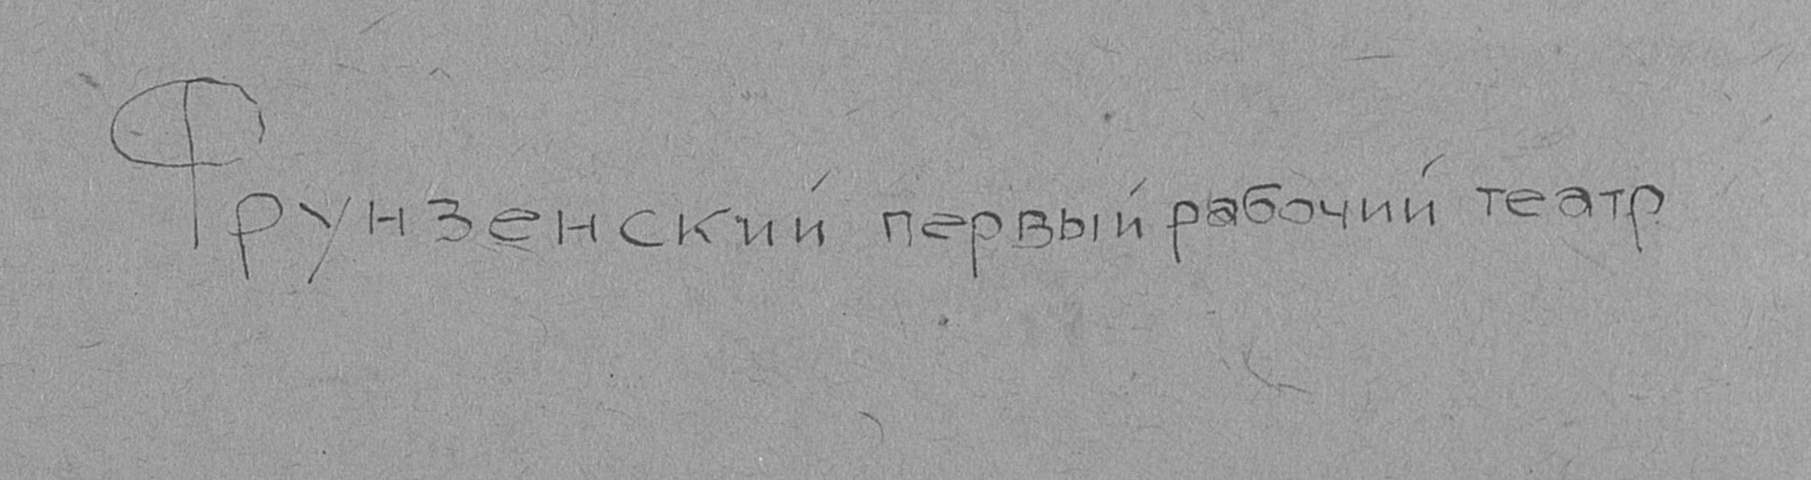 Фрунзенский первый рабочий театр